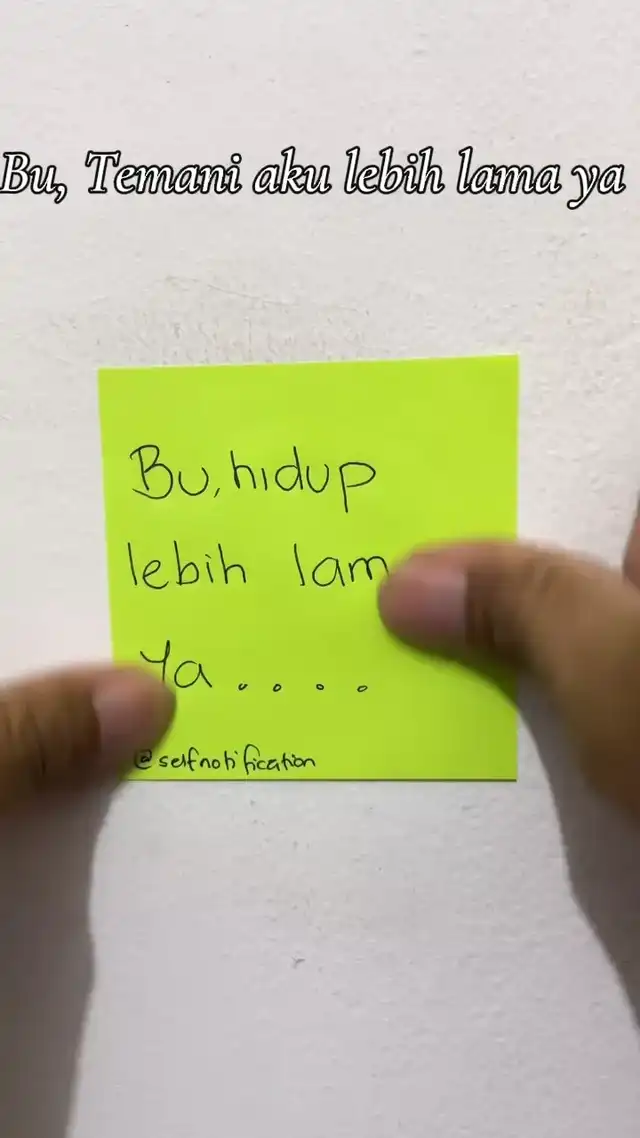 Bu, Temani aku lebih lama ya
Bu, hidup
lebih lam
Ya . . . .
@selfnotification